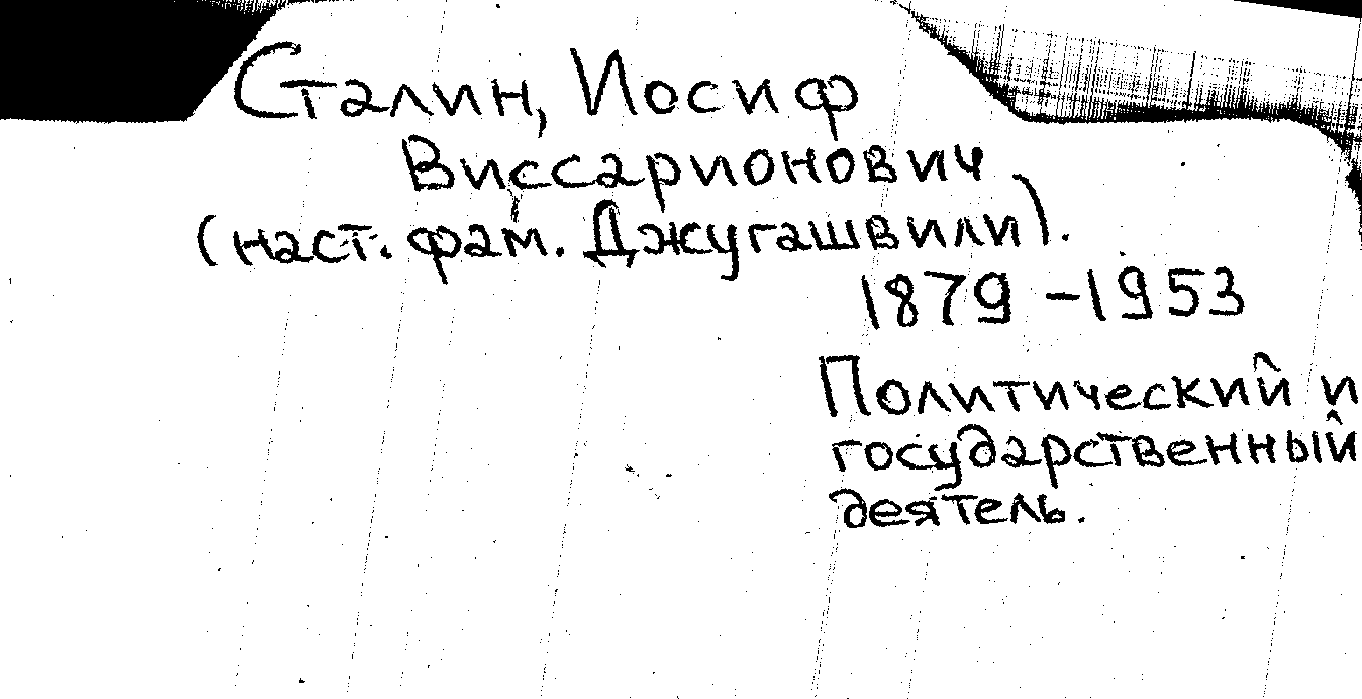 Сталин, Иосиф
Виссарионович
(наст. фам. Джугашвили).
1879 - 1953
Политический и
государственный
деятель.